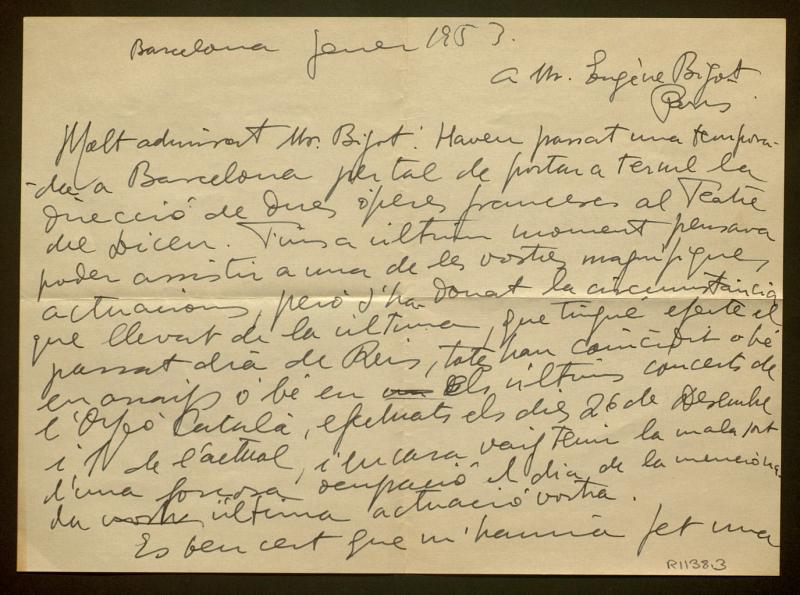 Barcelona Gener 1953.
a Mr. Eugène Bigot
Paris
Molt admirat Mr. Bigot: Haveu passat una tempora-
-da a Barcelona per tal de portar a terme la
direcció de dues òperes franceses al Teatre
del Liceu. Fins a últim moment pensava
poder assistir a una de les vostres magnifiques
actuacions, però s'ha donat la circumstància
que llevat de la última, que tingué efecte el
passat dia de Reis, totes han coincidit o bé
en assaigs o bé en els últims concerts de
l'Orfeó Català, efectuats els dies 26 de Desembre
i 1r de l'actual, i encara vaig tenir la mala sort
d'una forçosa ocupació el dia de la menciona-
da vostra última actuació vostra.
Es ben cert que m'hauria fet una
R1138.3